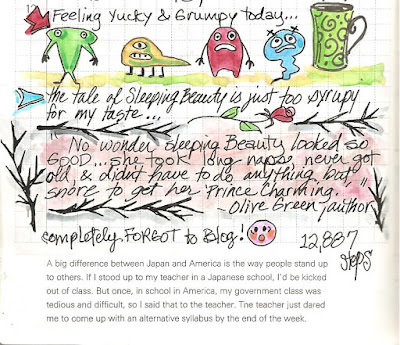 Feeling Yucky & Grumpy today...
the tale of Sleeping Beauty is just too syrupy
for my taste...
"No wonder Sleeping Beauty looked so
GOOD...she took long naps, never got
old, & didn't have to do anything but
snore to get her Prince Charming."
Olive Green, author
completely FORGOT to Blog!
12,887
steps
A big difference between Japan and America is the way people stand up
to others. If I stood up to my teacher in a Japanese school, I'd be kicked
out of class. But once, in school in America, my government class was
tedious and difficult, so I said that to the teacher. The teacher just dared
me to come up with an alternative syllabus by the end of the week.